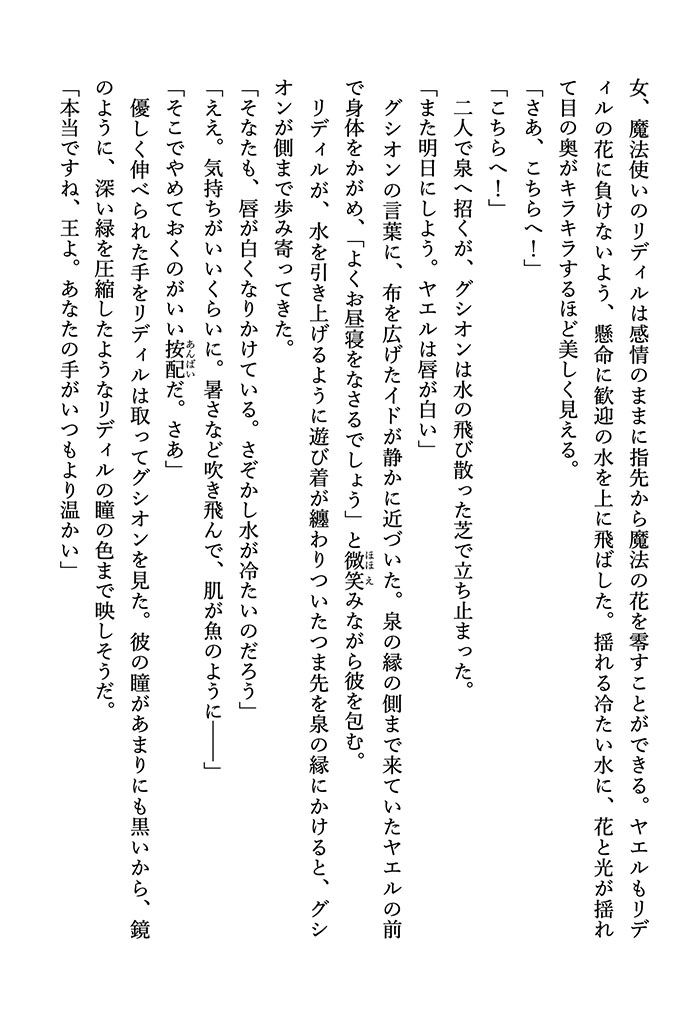 女、魔法使いのリディルは感情のままに指先から魔法の花を零すことができる。ヤエルもリデ
ィルの花に負けないよう、懸命に歓迎の水を上に飛ばした。揺れる冷たい水に、花と光が揺れ
て目の奥がキラキラするほど美しく見える。
「さあ、こちらへ！」
「こちらへ！」
　二人で泉へ招くが、グシオンは水の飛び散った芝で立ち止まった。
「また明日にしよう。ヤエルは唇が白い」
　グシオンの言葉に、布を広げたイドが静かに近づいた。泉の縁の側まで来ていたヤエルの前
で身体をかがめ、「よくお昼寝をなさるでしょう」と微笑みながら彼を包む。
　リディルが、水を引き上げるように遊び着が纏わりついたつま先を泉の縁にかけると、グシ
オンが側まで歩み寄ってきた。
「そなたも、唇が白くなりかけている。さぞかし水が冷たいのだろう」
「ええ。気持ちがいいくらいに。暑さなど吹き飛んで、肌が魚のように――」
「そこでやめておくのがいい按配だ。さあ」
　優しく伸べられた手をリディルは取ってグシオンを見た。彼の瞳があまりにも黒いから、鏡
のように、深い緑を圧縮したようなリディルの瞳の色まで映しそうだ。
「本当ですね、王よ。あなたの手がいつもより温かい」